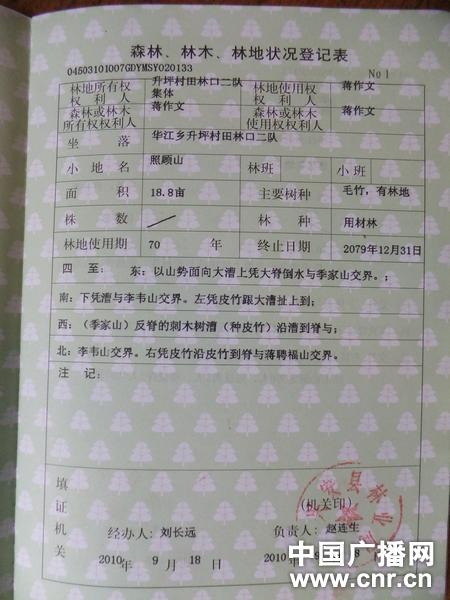 森林、林木、林地状况登记表
04503101007GDYMSY020133
No 1
林地所有权权利人 升坪村田林口二队集体 林地使用权权利人 蒋作文
森林或林木所有权权利人 蒋作文 森林或林木使用权权利人 蒋作文
坐落 华江乡升坪村田林口二队
小地名 照顾山 林班 小班
面积 18.8亩 主要树种 毛竹，有林地
株数 林种 用材林
林地使用期 70 年 终止日期 2079年12月31日
四至： 东：以山势面向大漕上凭大脊倒水与季家山交界。；
南：下凭漕与李韦山交界。左凭皮竹跟大漕扯上到；
西：（季家山）反脊的刺木树漕（种皮竹）沿漕到脊与；
北：李韦山交界。右凭皮竹沿皮竹到脊与蒋聘福山交界。
注 记：
填证机关
（机关印）
经办人：刘长远 负责人：赵连生
2010年 9 月 18 日 2010
中国广播网
www.cnr.cn